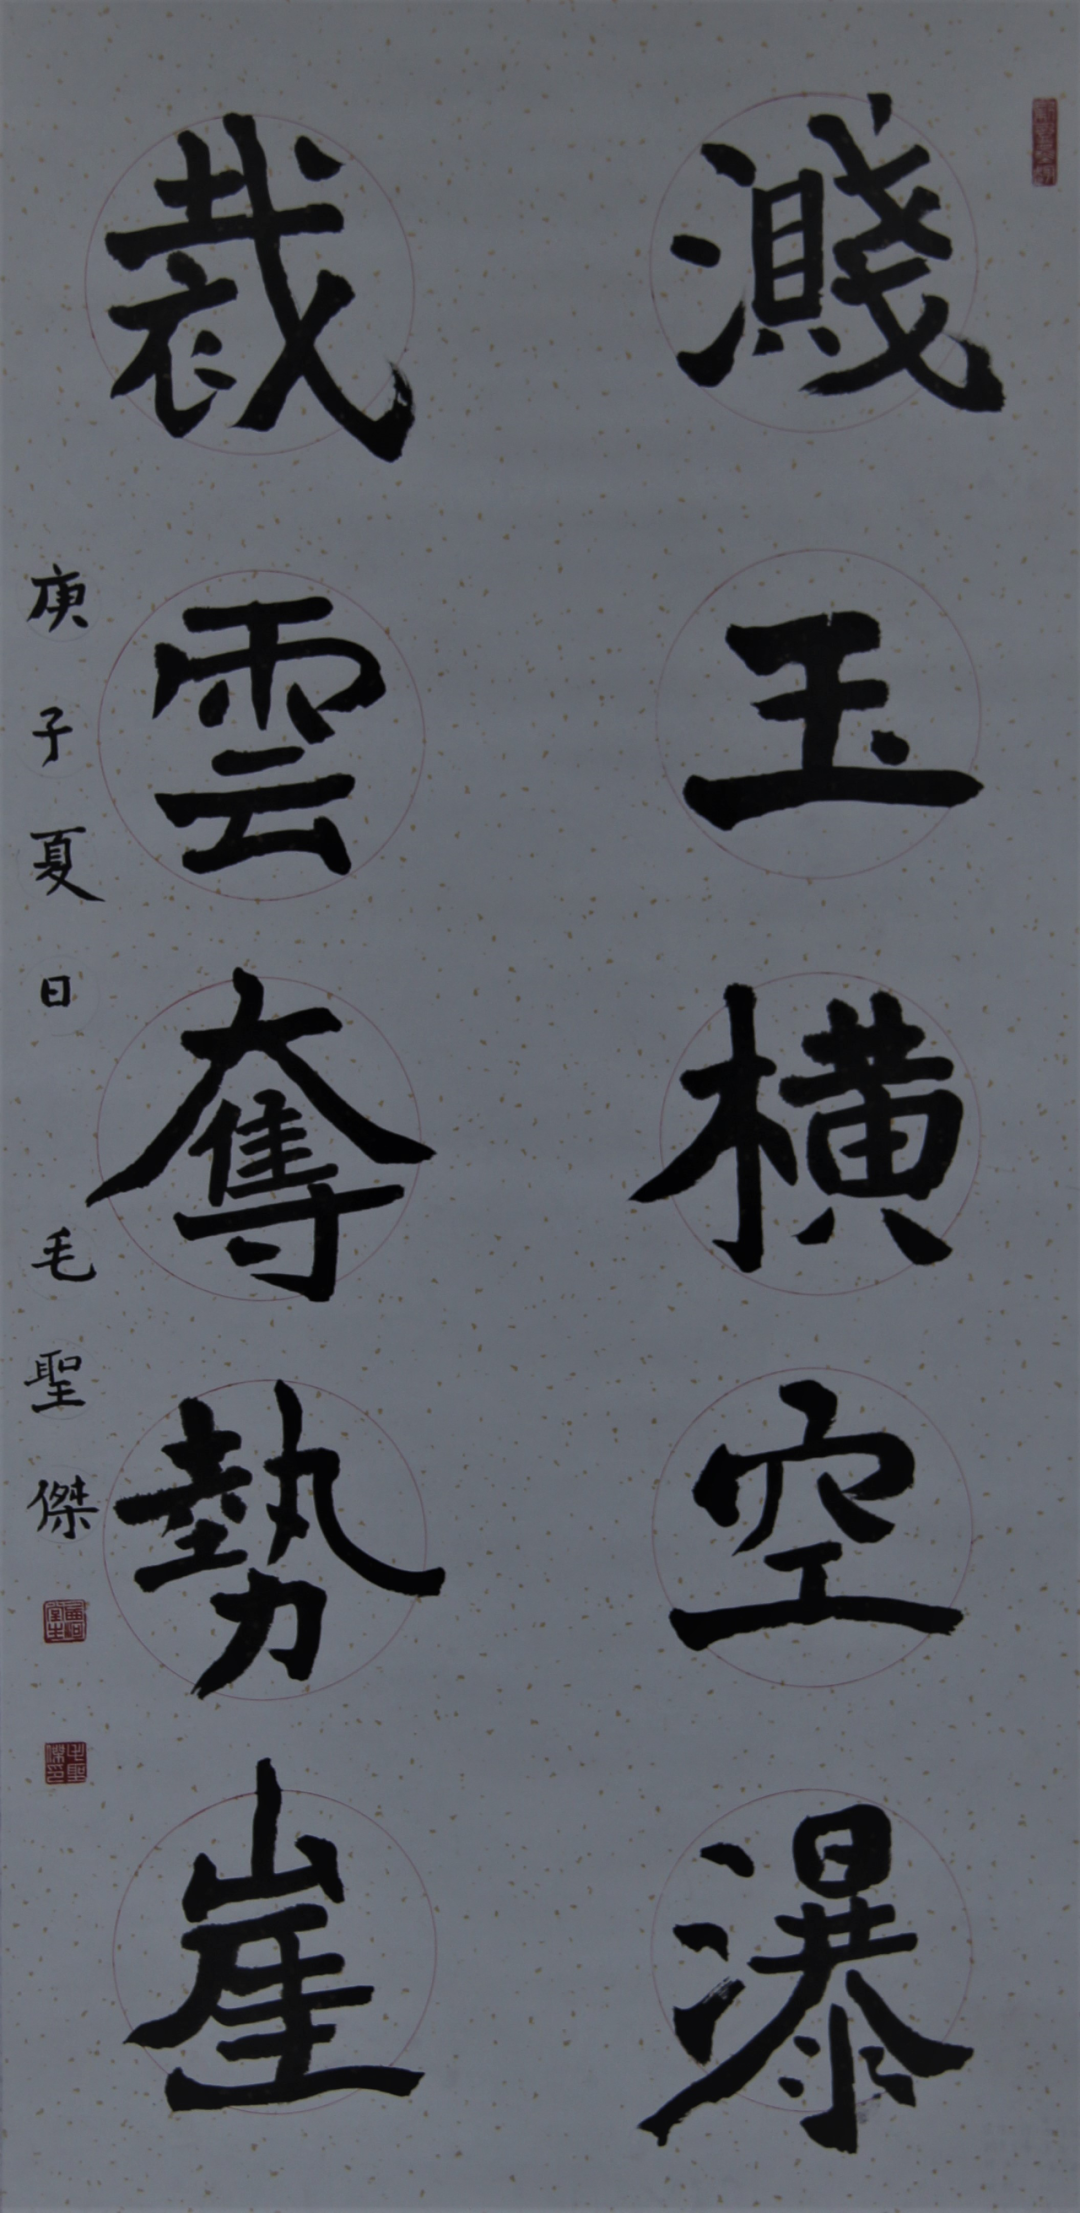 濺玉横空瀑
裁雲奪勢崖
庚子夏日 毛聖傑